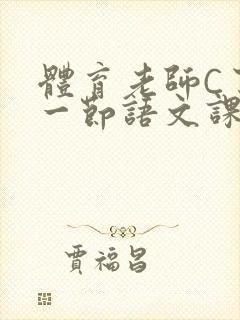 體育老師C
一節語文課
賈福昌